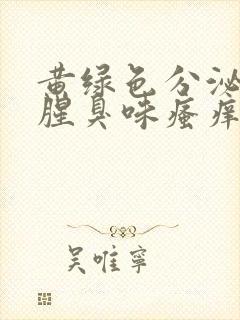 黄绿色分泌
腥臭味瘙痒
吴唯寧